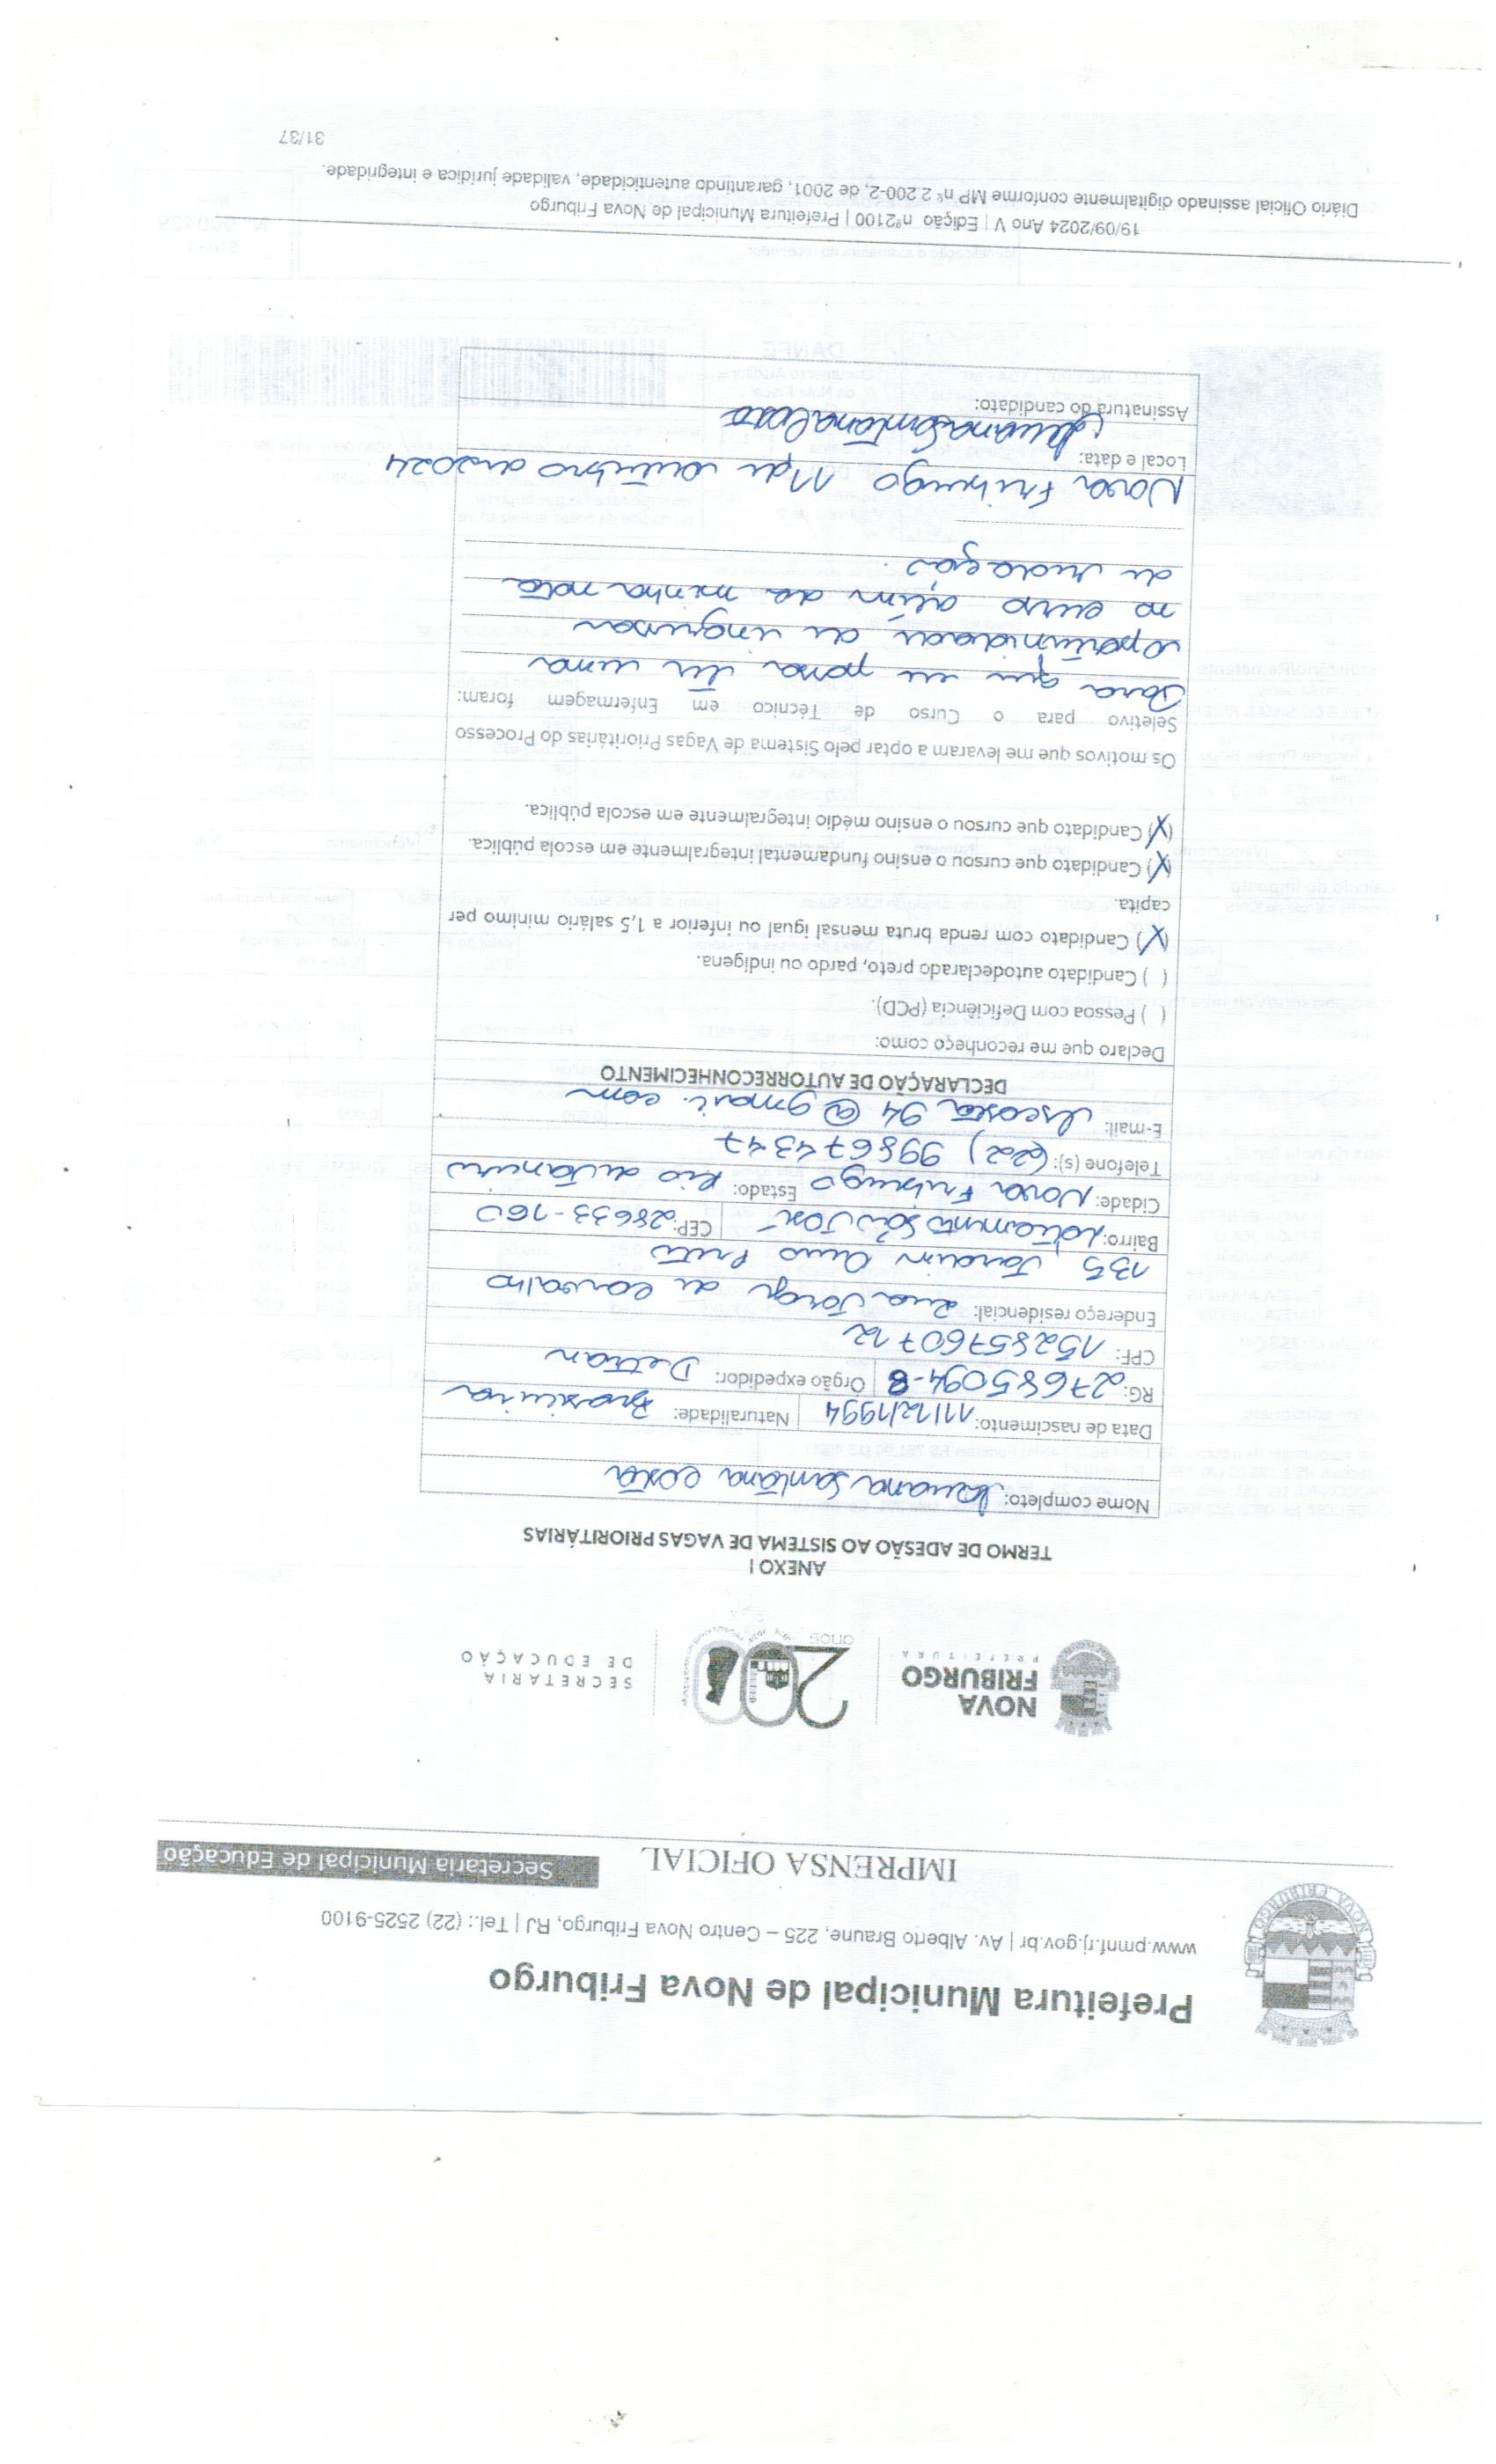 Prefeitura Municipal de Nova Friburgo
www.pmnf.rj.gov.br | Av. Alberto Braune, 225 – Centro Nova Friburgo, RJ | Tel.: (22) 2525-9100
IMPRENSA OFICIAL
Secretaria Municipal de Educação
NOVA
FRIBURGO
PREFEITURA
200
anos
SECRETARIA
DE EDUCAÇÃO
ANEXO I
TERMO DE ADESÃO AO SISTEMA DE VAGAS PRIORITÁRIAS
Nome completo: Santana costa
Data de nascimento: 11/12/1994 Naturalidade: Brasileira
RG: 27685094-8 Órgão expedidor: Detran
CPF: 15285760712
Endereço residencial: Rua Jorge de Carvalho
135 Jardim Ouro Preto
Bairro: Loteamento São José CEP: 28633-160
Cidade: Nova Friburgo Estado: Rio de Janeiro
Telefone (s): (22) 998674347
E-mail: lscosta94@gmail.com
DECLARAÇÃO DE AUTORRECONHECIMENTO
Declaro que me reconheço como:
( ) Pessoa com Deficiência (PCD).
( ) Candidato autodeclarado preto, pardo ou indígena.
(X) Candidato com renda bruta mensal igual ou inferior a 1,5 salário mínimo per
capita.
(X) Candidato que cursou o ensino fundamental integralmente em escola pública.
(X) Candidato que cursou o ensino médio integralmente em escola pública.
Os motivos que me levaram a optar pelo Sistema de Vagas Prioritárias do Processo
Seletivo para o Curso de Técnico em Enfermagem foram:
Para que eu possa ter uma
oportunidade de ingressar
no curso além da minha nota
de redação.
Nova Friburgo 11 de outubro de 2024
Local e data:
Santana Costa
Assinatura do candidato:
19/09/2024 Ano V | Edição nº2100 | Prefeitura Municipal de Nova Friburgo
Diário Oficial assinado digitalmente conforme MP nº 2.200-2, de 2001, garantindo autenticidade, validade jurídica e integridade.
31/37